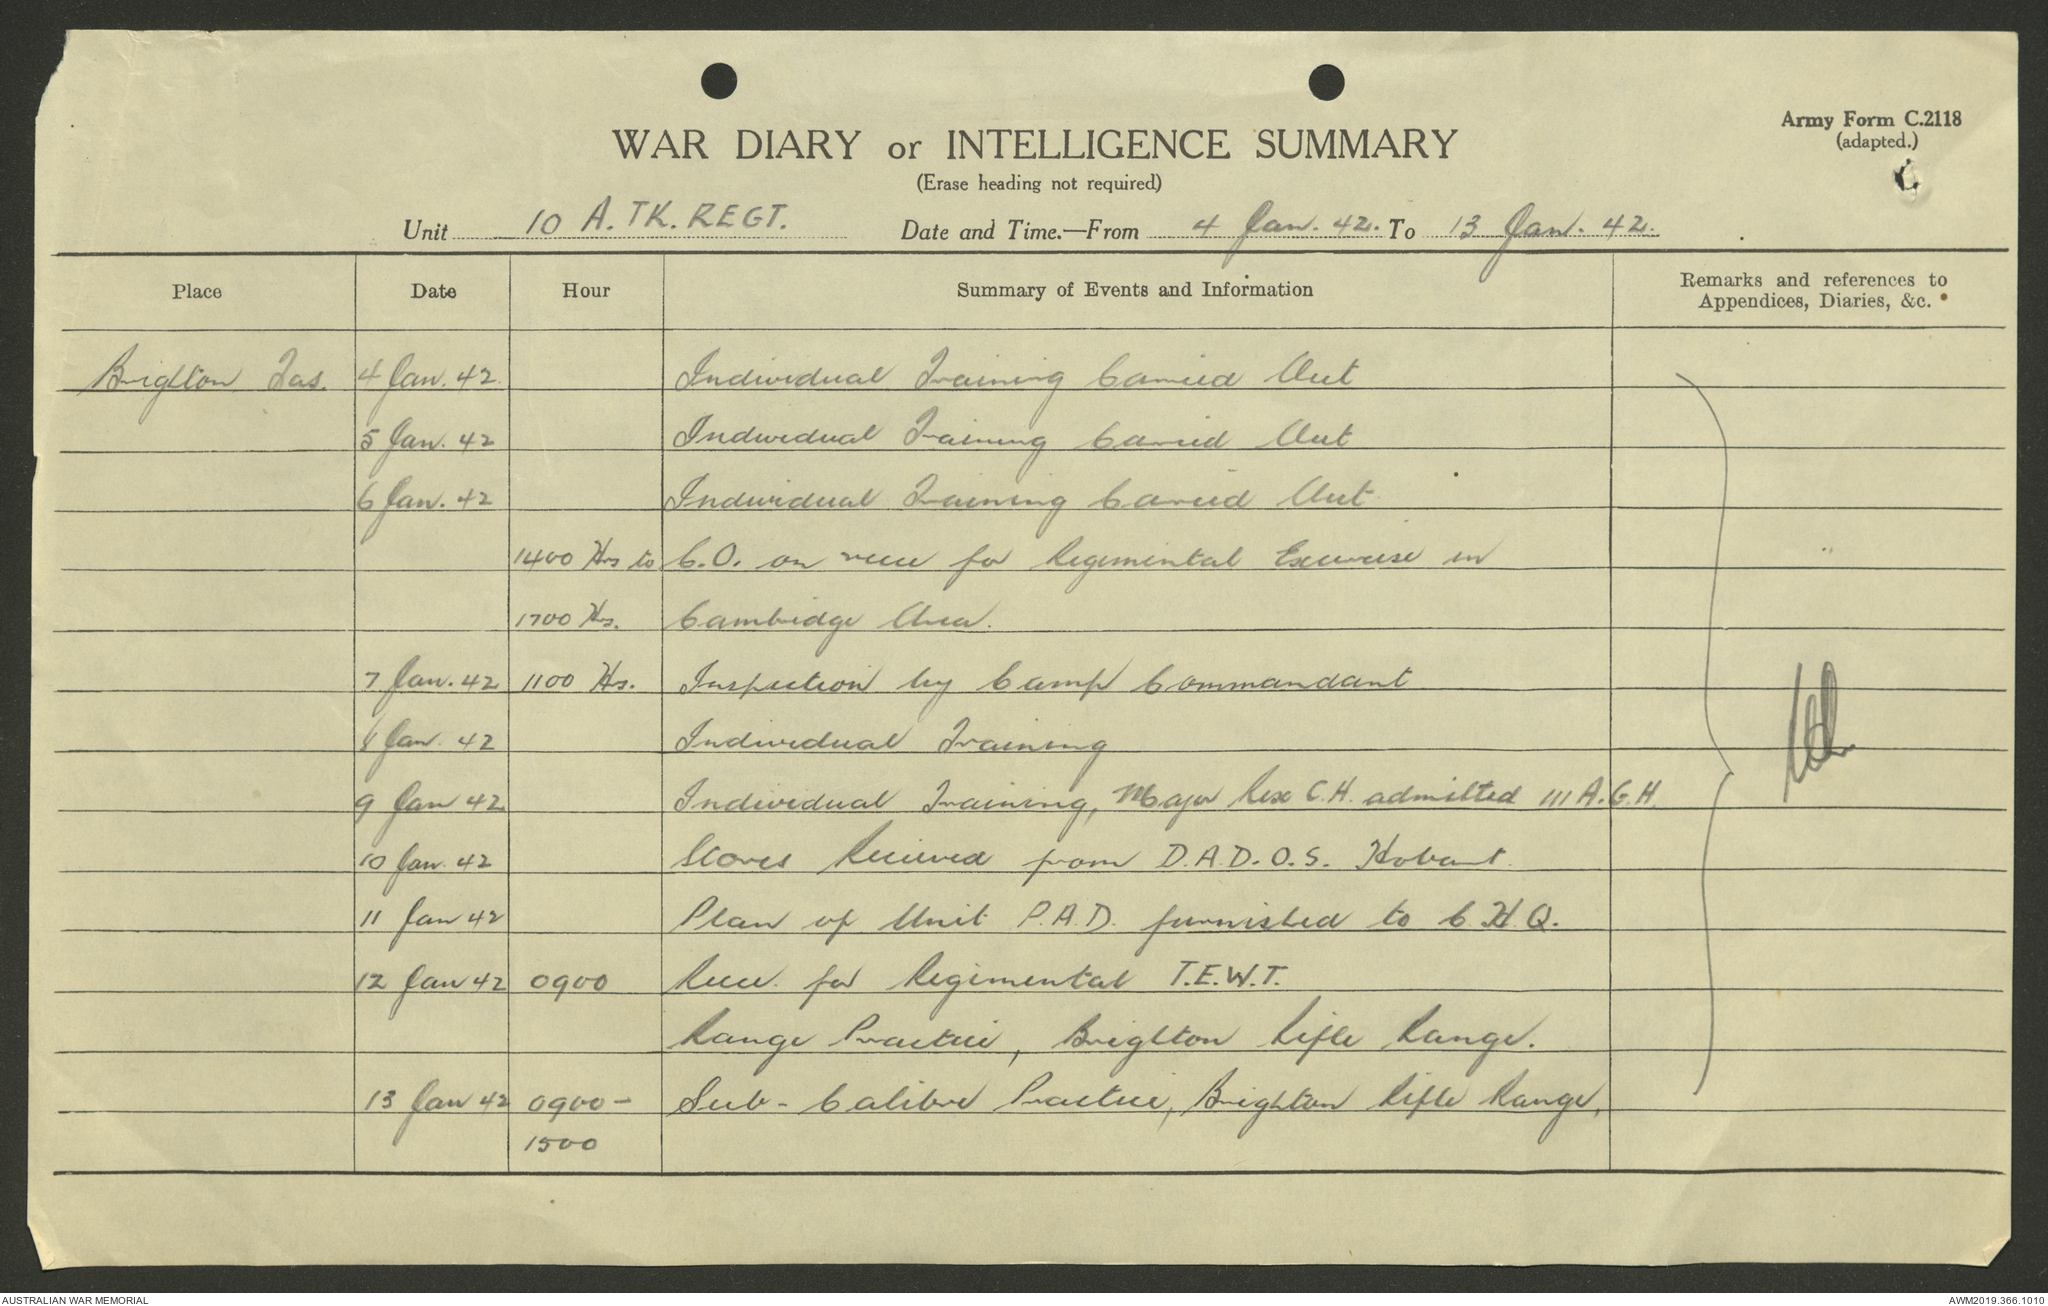 Army Form C.2118
(adapted.)
WAR DIARY or INTELLIGENCE SUMMARY
(Erase heading not required)
Unit 10 A. TK. REGT. Date and Time.—From 4 Jan. 42. To 13 Jan. 42.
Place Date Hour Summary of Events and Information Remarks and references to
Appendices, Diaries, &c.
Brighton Tas. 4 Jan. 42. Individual Training Carried Out
5 Jan. 42 Individual Training Carried Out
6 Jan. 42 Individual Training Carried Out
1400 Hrs to C.O. on recce for Regimental Exercise in
1700 Hrs. Cambridge Area.
7 Jan. 42 1100 Hrs. Inspection by Camp Commandant
8 Jan. 42 Individual Training
9 Jan 42 Individual Training, Major C.H. admitted 111 A.G.H.
10 Jan. 42 Stores Received from D.A.D.O.S. Hobart.
11 Jan 42 Plan of Unit P.A.D. furnished to C.H.Q.
12 Jan 42 0900 Recce. for Regimental T.E.W.T.
Range Practice, Brighton Rifle Range.
13 Jan 42 0900 - Sub-Calibre Practice, Brighton Rifle Range.
1500
AUSTRALIAN WAR MEMORIAL AWM2019.366.1010